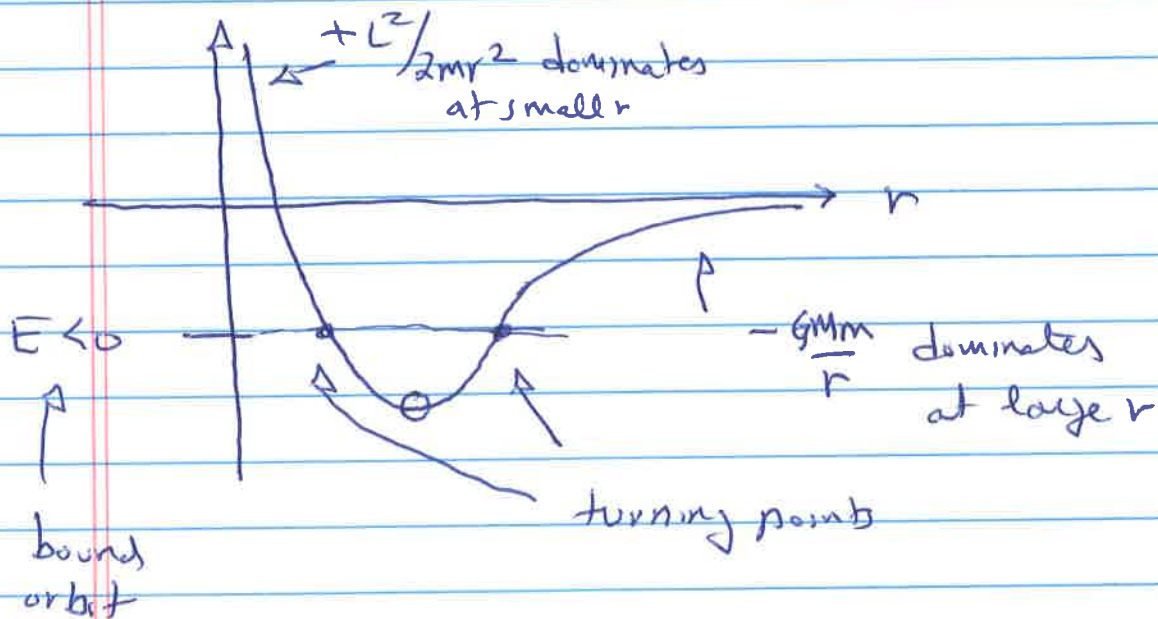 +L²/2mr² dominates
at small r
r
E<0
-GMm/r dominates
at large r
turning points
bound
orbit